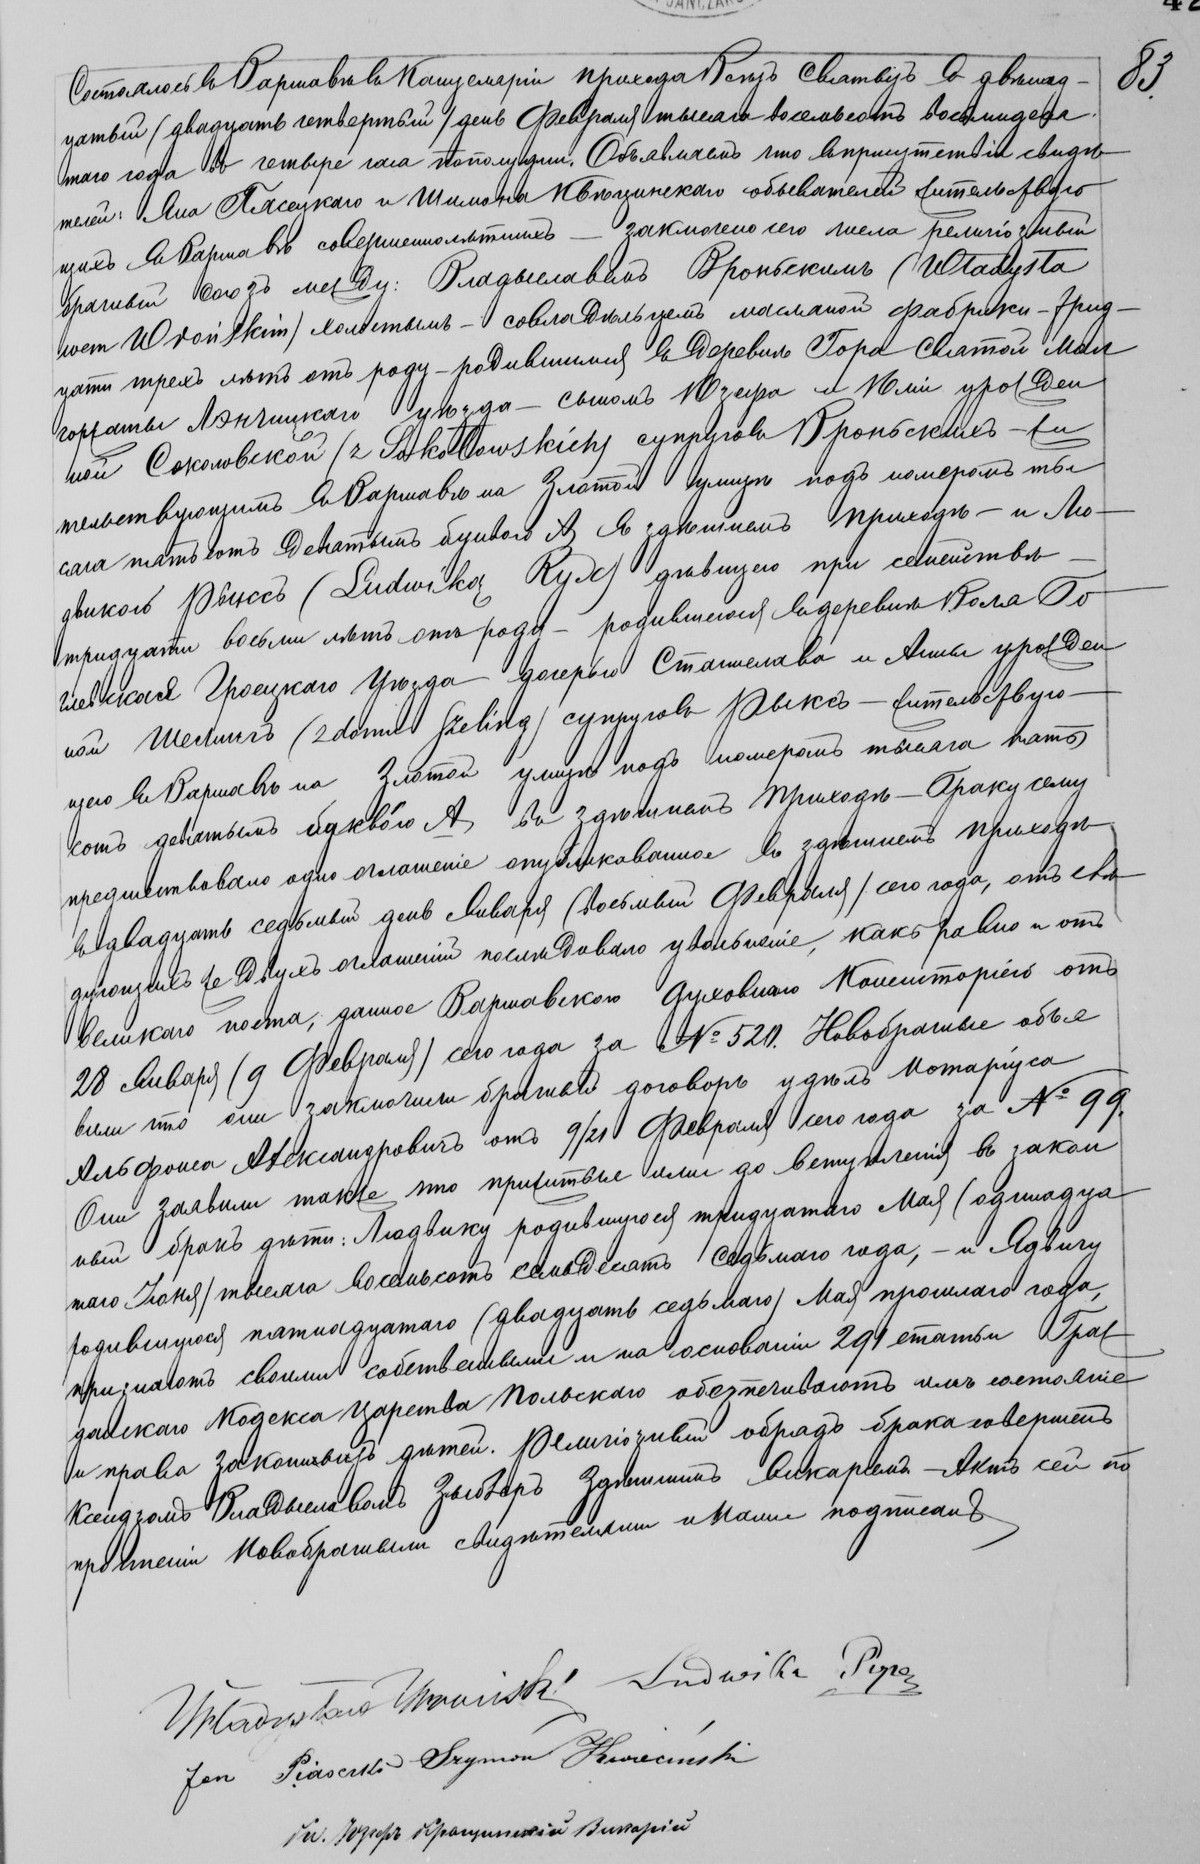 83.
Состоялось въ Варшавѣ въ Канцеляріи прихода Всѣхъ Святыхъ въ двѣнад-
цатый (двадцать четвертый) день Февраля тысяча восемьсотъ восьмидеся
таго года въ четыре часа пополудни. Объявляемъ что въ присутствіи свидѣ
телей: Яна Пясецкаго и Шимона Квѣцинскаго обывателей жительствую
щихъ въ Варшавѣ совершеннолѣтнихъ — заключено сего числа религіозный
брачный союзъ между: Владыславомъ Вроньскимъ (Władysła
wem Wrońskim) холостымъ — совладѣльцемъ масляной фабрики — трид-
цати трехъ лѣтъ отъ роду — родившимся въ деревнѣ Гора Святой Мал
горжаты Лэнчицкаго уѣзда — сыномъ Юзефа и Юліи урожден
ной Соколовской (z Sokołowskich) супруговъ Вроньскихъ — жи
тельствующимъ въ Варшавѣ на Злотой улицѣ подъ номеромъ ты
сяча пятьсотъ девятымъ буквою А, въ здѣшнемъ приходѣ — и Лю-
двикою Рыксъ (Ludwiką Ryx) дѣвицею при семействѣ —
тридцати восьми лѣтъ отъ роду — родившеюся въ деревнѣ Воля
Гроецкаго Уѣзда — дочерью Станислава и Анны урожден
ной Шелингъ (z domu Szeling) супруговъ Рыксъ — жительствую-
щею въ Варшавѣ на Злотой улицѣ подъ номеромъ тысяча пять
сотъ девятымъ буквою А, въ здѣшнемъ приходѣ — Браку сему
предшествовало одно оглашеніе опубликованное въ здѣшнемъ приходѣ
въ двадцать седьмый день Января (восьмый Февраля) сего года, отъ слѣ
дующихъ же двухъ оглашеній послѣдовало увольненіе, какъ равно и отъ
великаго поста, данное Варшавскою Духовною Консисторіею отъ
28 Января (9 Февраля) сего года за № 520. Новобрачные объя
вили что они заключили брачный договоръ у дѣлъ Нотаріуса
Альфонса Александровичъ отъ 9/21 Февраля сего года за № 99.
Они заявили также что прижитые ими до вступленія въ закон
ный бракъ дѣти: Людвику родившуюся тридцатаго Мая (одиннадца
таго Іюня) тысяча восемьсотъ семьдесятъ седьмаго года, — и Ядвигу
родившуюся пятнадцатаго (двадцать седьмаго) Мая прошлаго года,
признаютъ своими собственными и на основаніи 291 статьи Граж
данскаго Кодекса Царства Польскаго обезпечиваютъ имъ состояніе
и права законныхъ дѣтей. Религіозный обрядъ брака совершенъ
Ксендзомъ Владыславомъ здѣшнимъ викаріемъ — Актъ сей по
прочтеніи Новобрачными свидѣтелями и Нами подписанъ
Władysław Wroński Ludwika Ryx
Jan Piasecki Szymon Kwieciński
Кс. Юзефъ Викарій